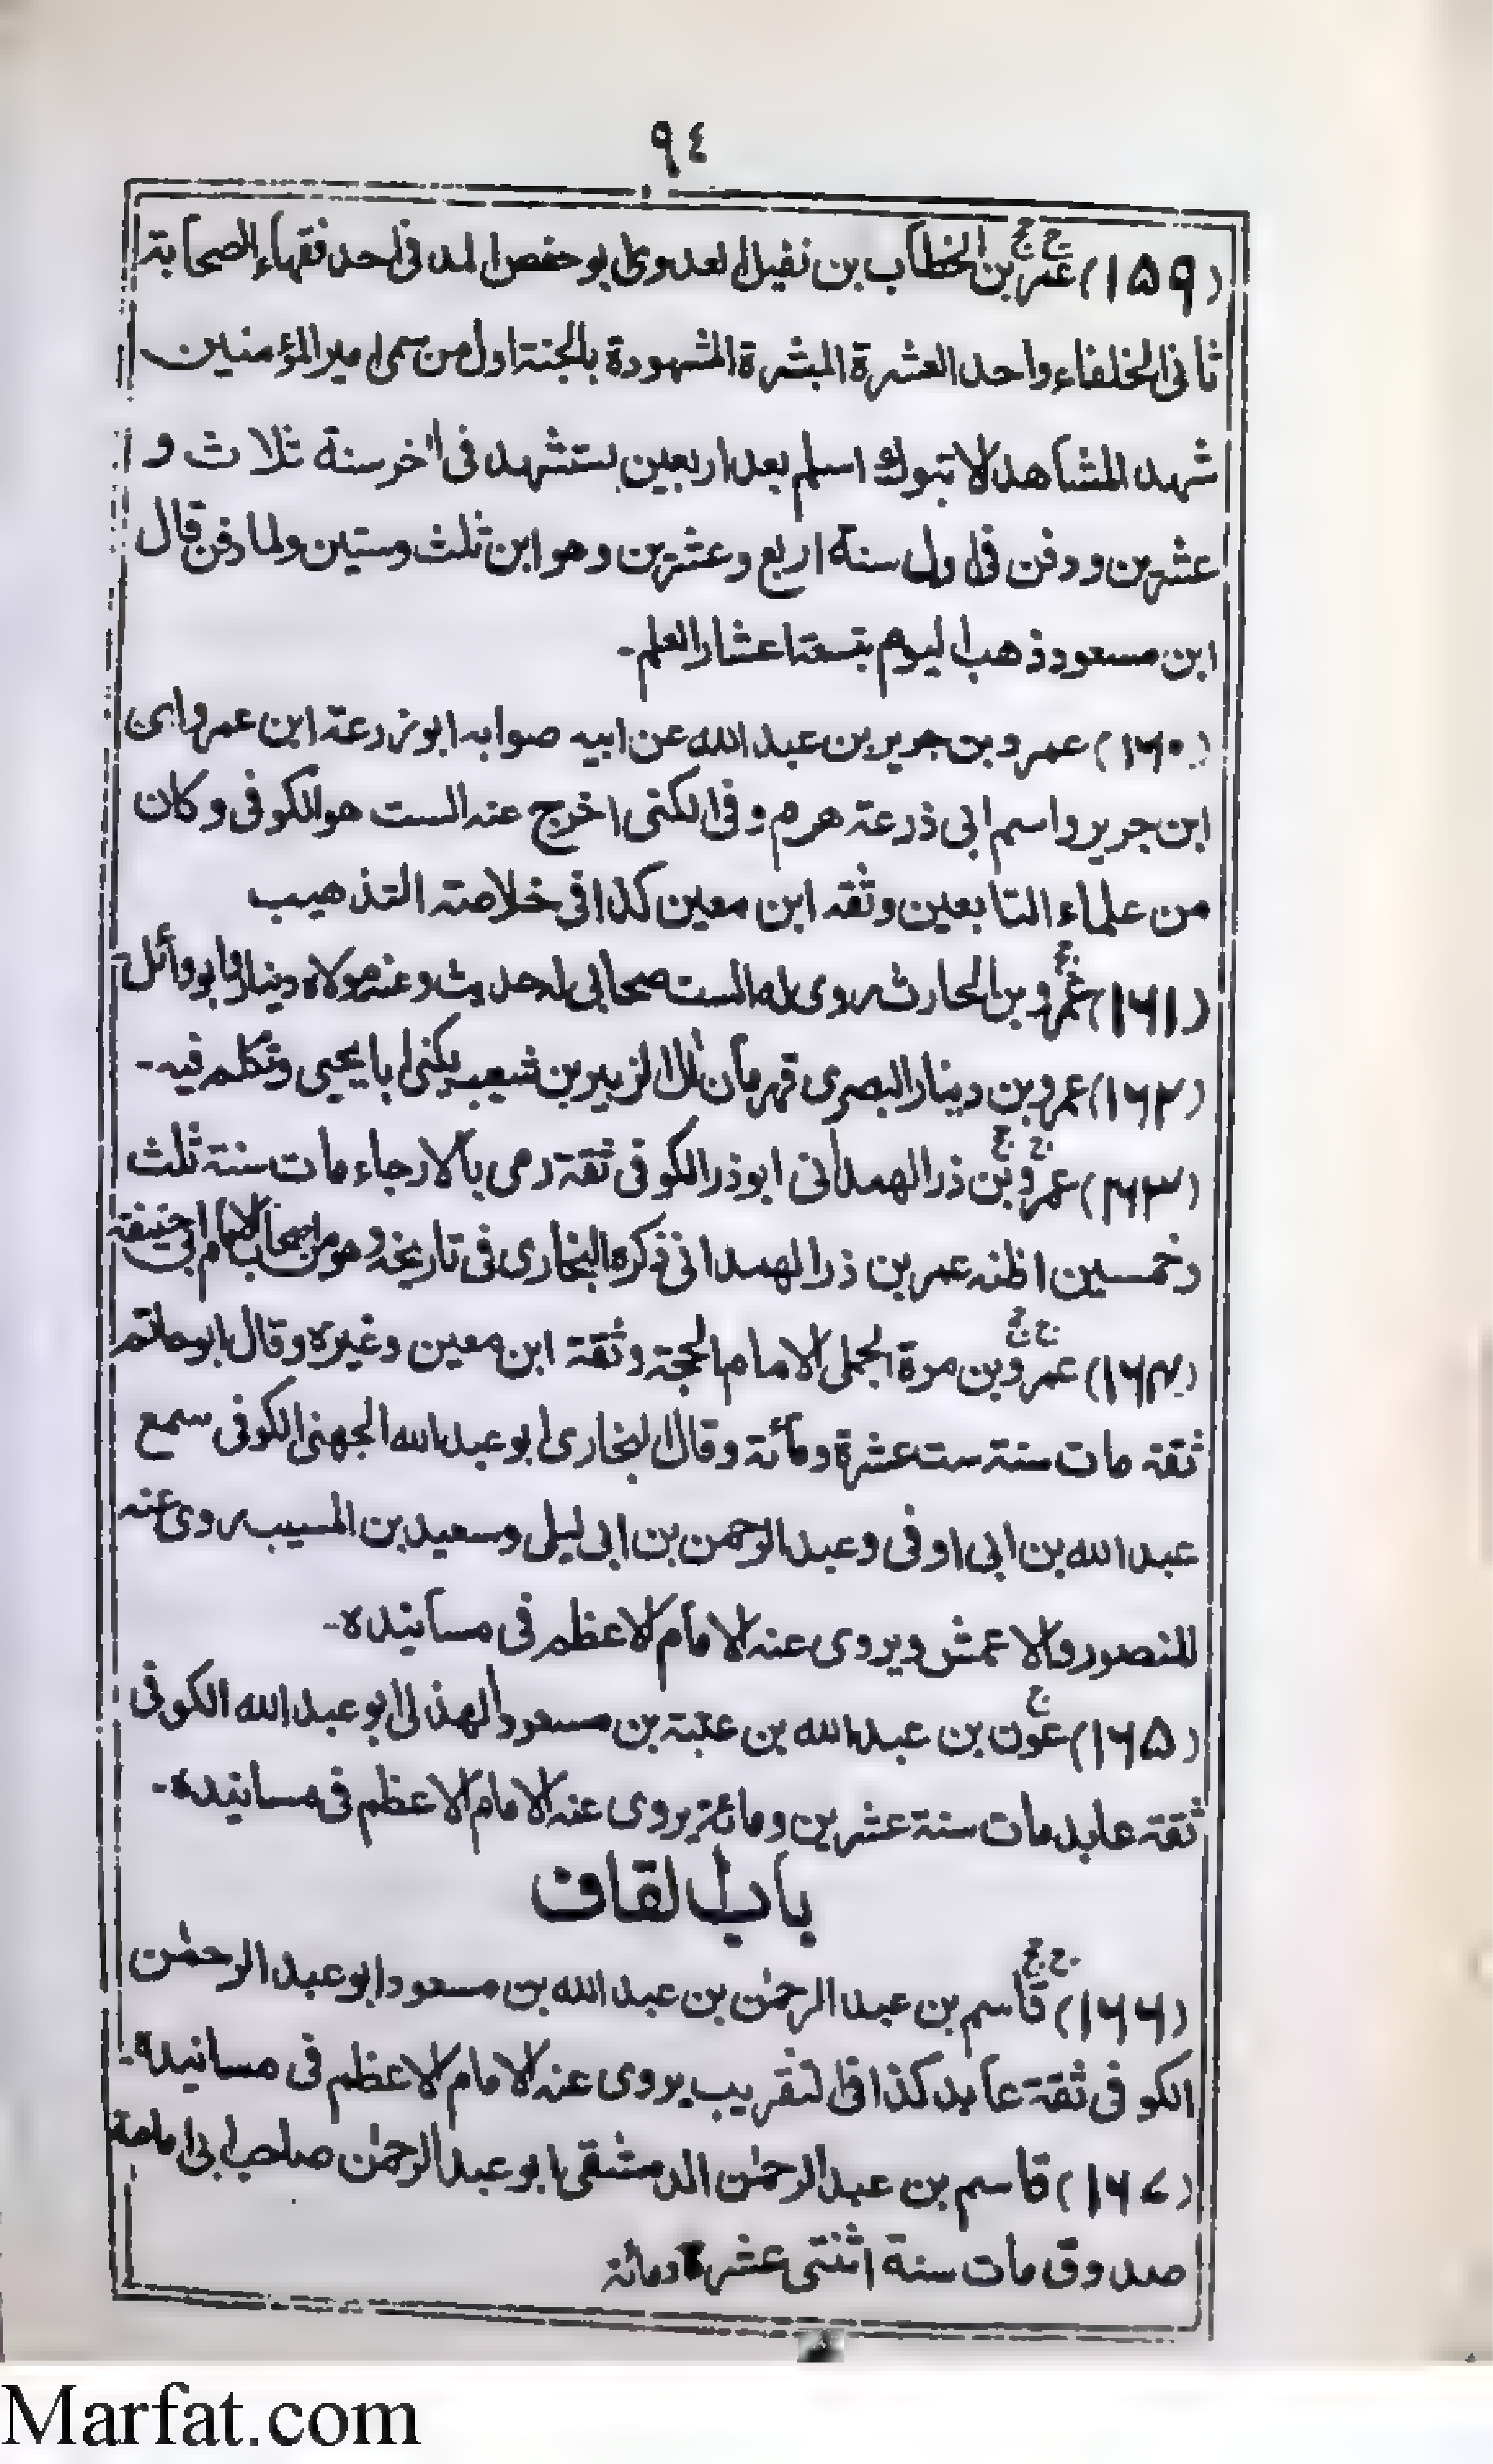 ٩٤
(١٥٩) عمر بن الخطاب بن نفيل العدوى ابو حفص المدنى احد فقهاء الصحابة
ثانى الخلفاء واحد العشرة المبشرة المشهودة بالجنة اول من سمى امير المؤمنين
شهد المشاهد الا تبوك اسلم بعد اربعين يستشهد فى اخر سنة ثلاث و
عشرين ودفن فى اول سنة اربع وعشرين وهو ابن ثلث وستين ولما دفن قال
ابن مسعود ذهب اليوم بتسعة اعشار العلم۔
(١٦٠) عمرو بن جرير بن عبد الله عن ابيه صوابه ابو زرعة ابن عمرو اى
ابن جرير واسم ابى ذرعة هرم وفى الكنى اخرج عنه الست هو الكوفى وكان
من علماء التابعين وثقه ابن معين كذا فى خلاصة التذهيب
(١٦١) عمرو بن الحارث روى له الست صحابى له حديث وعنه مولاه دينار وابو وائل
(١٦٢) عمرو بن دينار البصرى قهرمان ال الزبير بن شعيب يكنى ابا يحيى وتكلم فيه۔
(١٦٣) عمرو بن ذر الهمدانى ابو ذر الكوفى ثقة رمى بالارجاء مات سنة ثلث
وخمسين اظنه عمر بن ذر الهمدانى ذكره البخارى فى تاريخه وهو من اصحاب الامام ابى حنيفة
(١٦٤) عمرو بن مرة الجملى الامام الحجة وثقة ابن معين وغيره وقال ابو حاتم
ثقة مات سنة ست عشرة ومائة وقال البخارى ابو عبد الله الجهنى الكوفى سمع
عبد الله بن ابى اوفى وعبد الرحمن بن ابى ليلى وسعيد بن المسيب روى عنه
المنصور والاعمش ويروى عنه الامام الاعظم فى مسانيده۔
(١٦٥) عون بن عبد الله بن عتبة بن مسعود الهذلى ابو عبد الله الكوفى
ثقة عابد مات سنة عشرين ومائة يروى عنه الامام الاعظم فى مسانيده۔
باب القاف
(١٦٦) قاسم بن عبد الرحمٰن بن عبد الله بن مسعود ابو عبد الرحمٰن
الكوفى ثقة عابد كذا فى التقريب يروى عنه الامام الاعظم فى مسانيده۔
(١٦٧) قاسم بن عبد الرحمٰن الدمشقى ابو عبد الرحمٰن صاحب ابى امامة
صدوق مات سنة اثنتى عشرة ومائة
Marfat.com